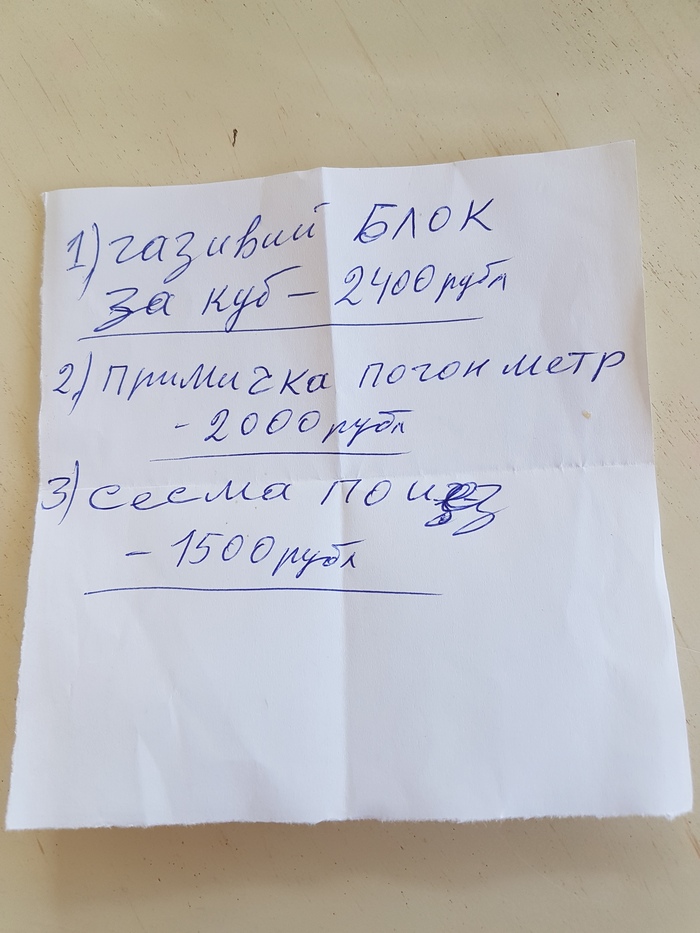 1) газивий БЛОК
за куб - 2400 рубл
2) примичка погон метр
- 2000 рубл
3) сесма пояз
- 1500 рубл